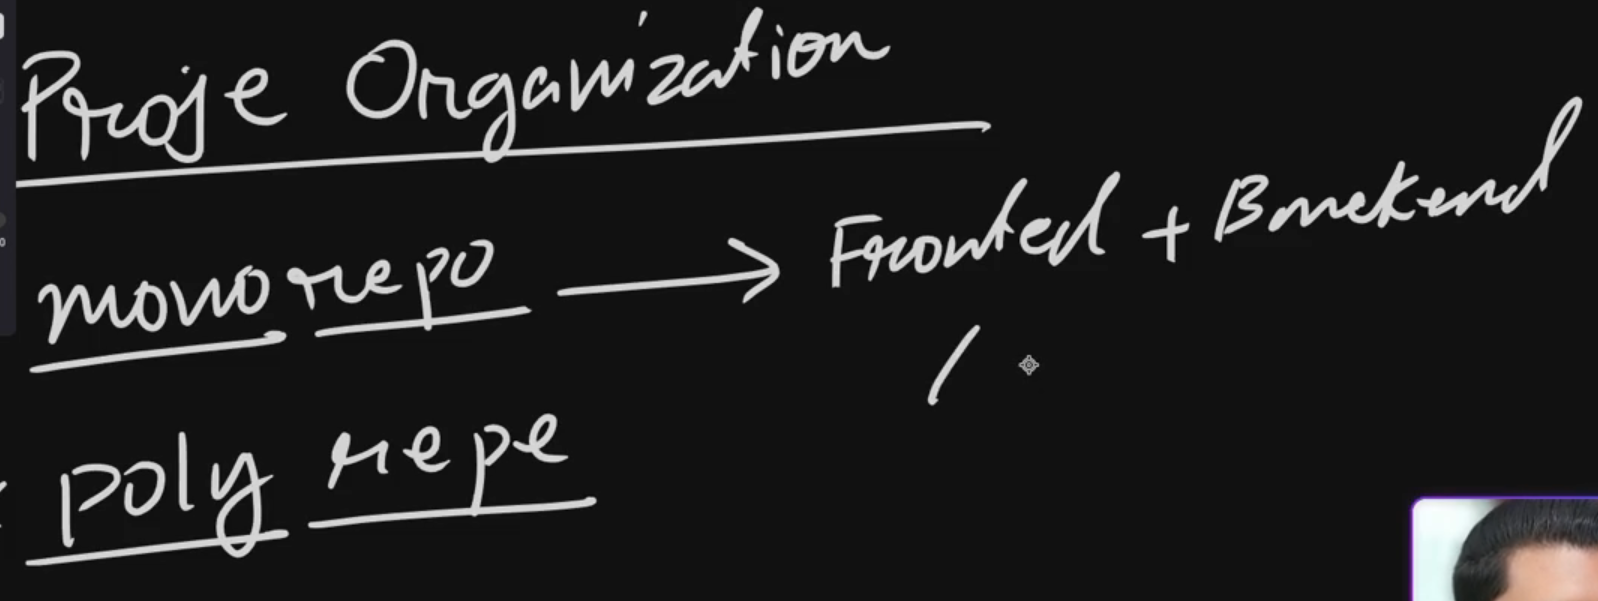 Proje Organization
monorepo → Fronted + Backend
poly repe